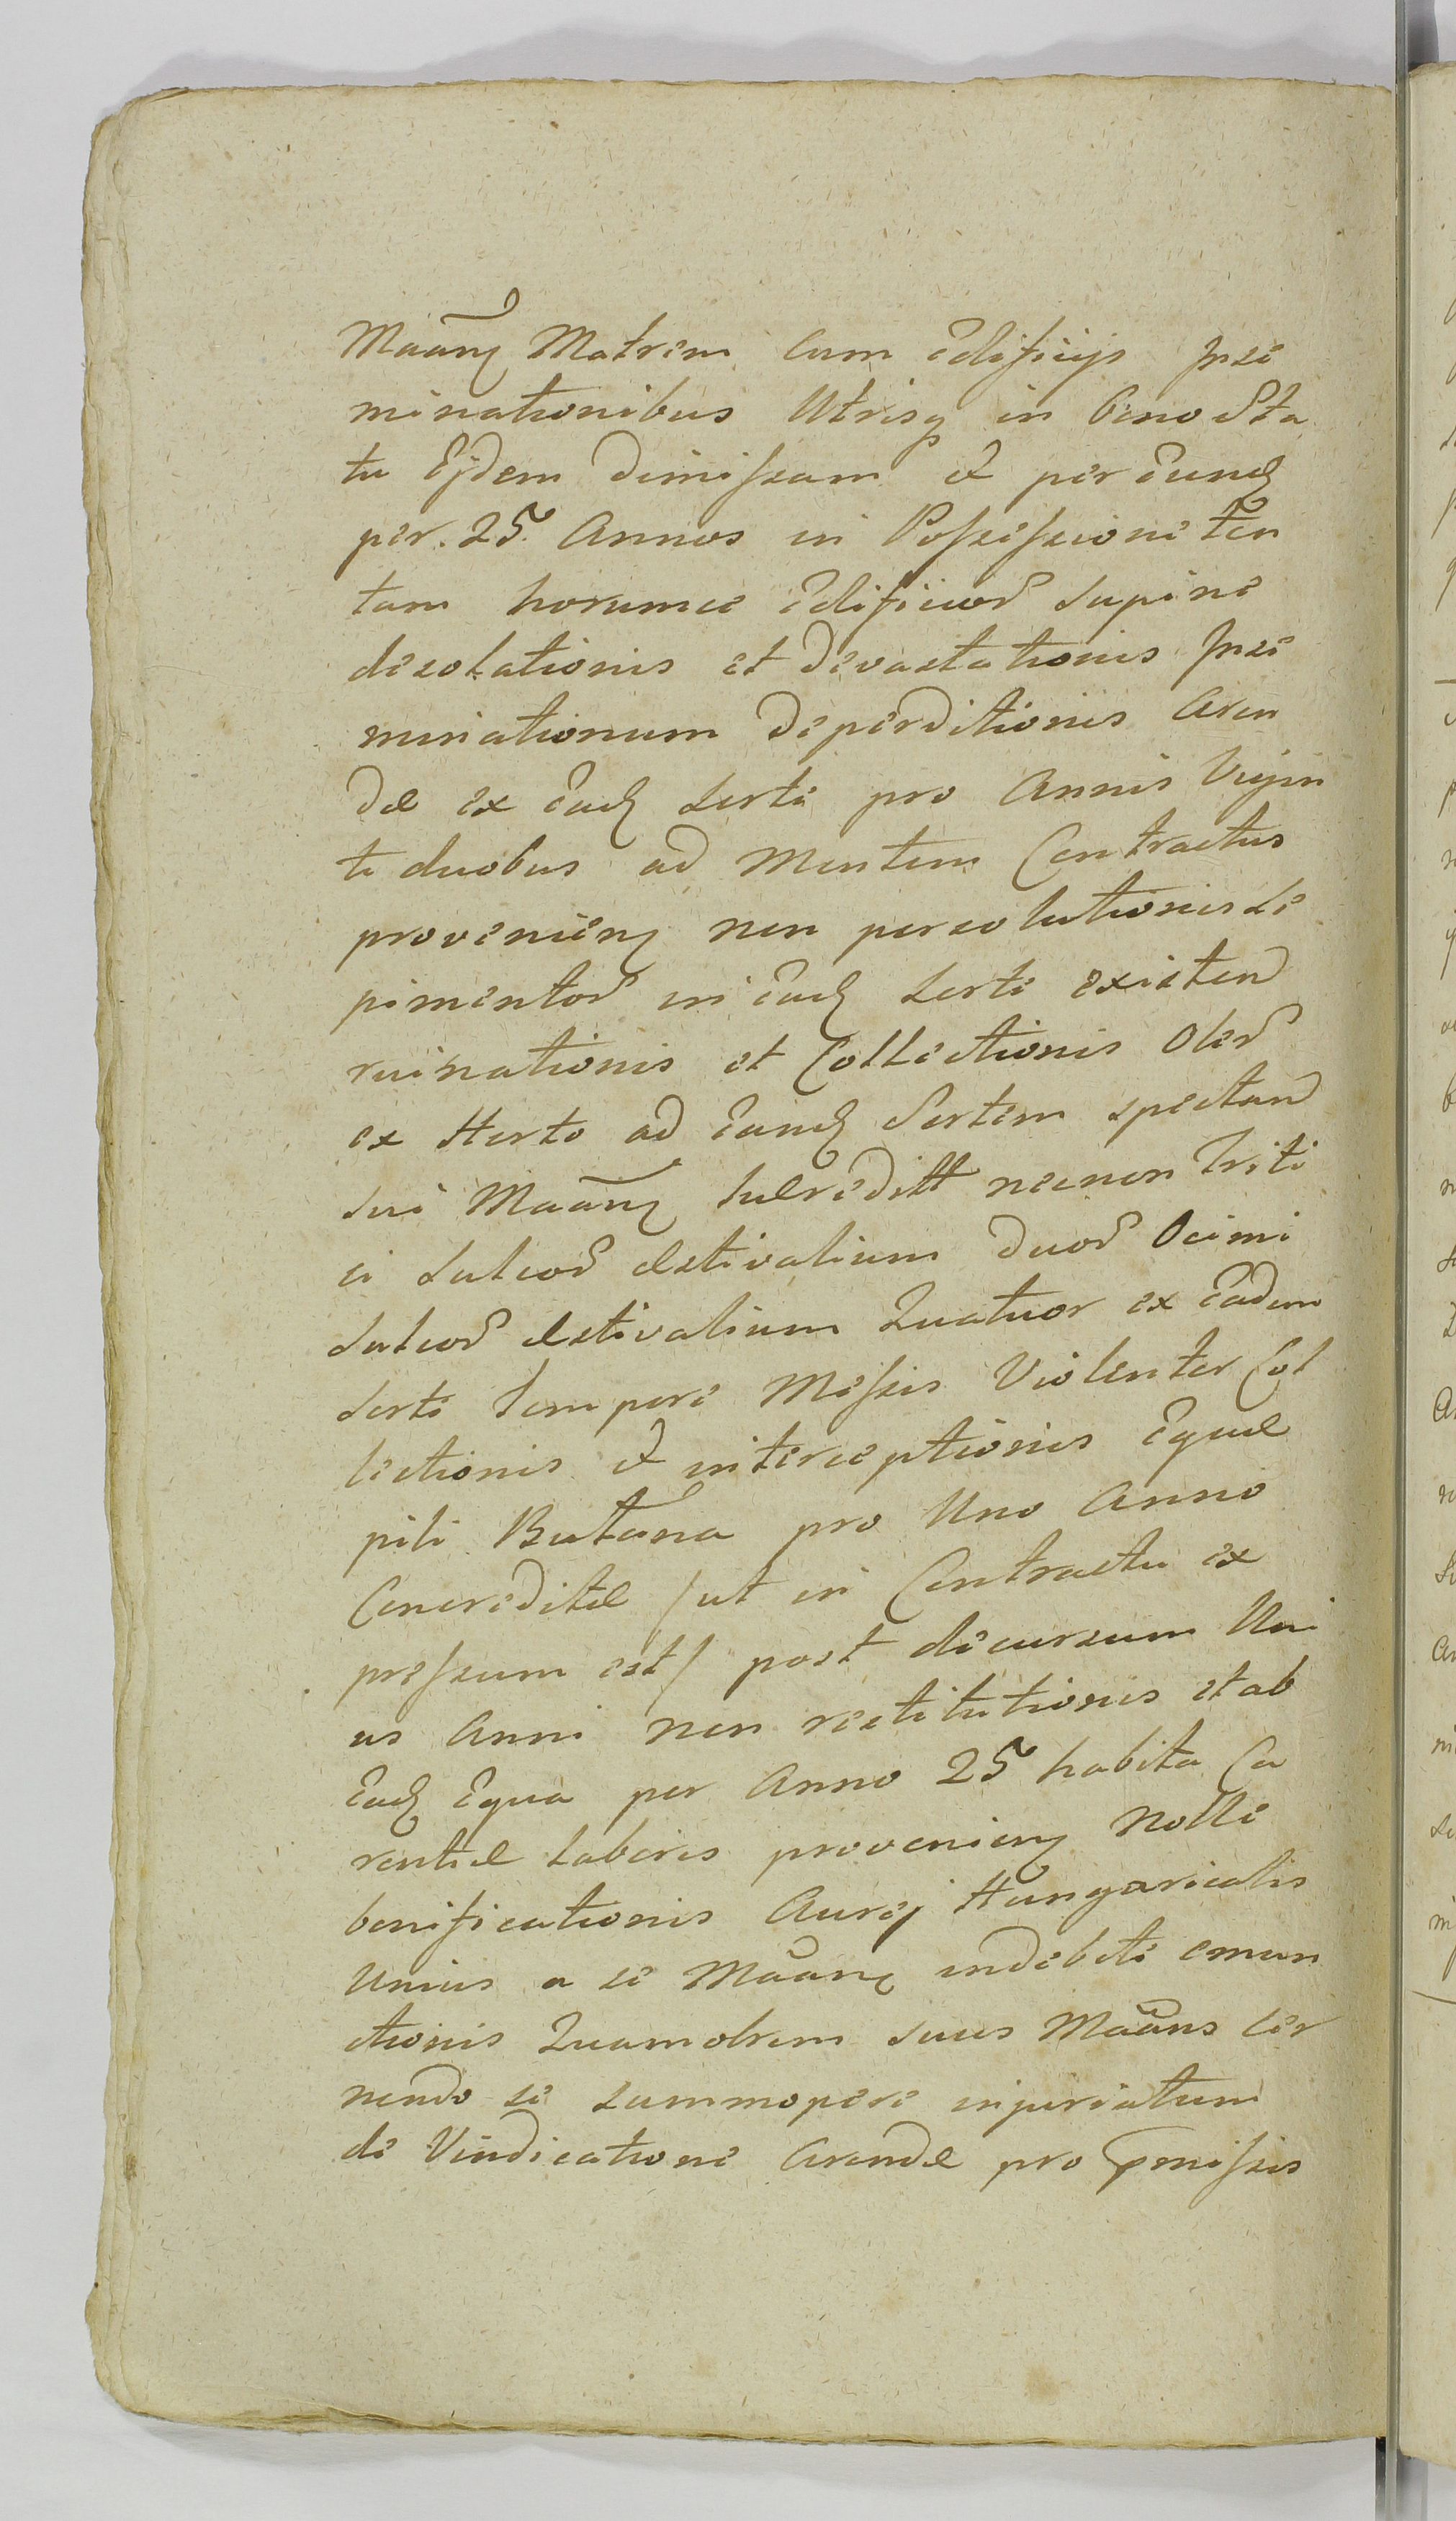 Maanꝫ Matrem Cum Edificijs Inse
minationibus Utrisq in bono Sta
tu Ejdem dimissam et per eund
per. 25. Annos in Possessione ten
tam horumce Edificior supine
desolationis et devastationis Inse
minationum deperditionis Aren
dæ ex ead sorte pro Annis Vigin
ti duobus ad Mentem Contractus
provenienꝫ non persolutionis Se
pimentor in ead sorte existen
ruinationis et Collectionis Oler
ex Horto ad eand Sortem spectan
sui Maanꝫ necnon Triti
ci sulcor æstivalium duor Ocimi
sulcor æstivalium Quatuor ex Eadem
sorte tempore Messis Violenter Col
lectionis et interceptionis Equæ
pili Butana pro Uno Anno
Concreditæ /ut in Contractu ex
pressum est/ post decursum Uni
us Anni non restitutionis et ab
Ead Equa per Anno 25 habita Ca
rentiæ laboris provenienꝫ Nolle
bonificationis Aurej Hungaricalis
Unius a se Maanꝫ indebite emun
ctionis Quamobrem suus Maans cer
nendo se summopere injuriatum
de Vindicatione Arendæ pro pmissis